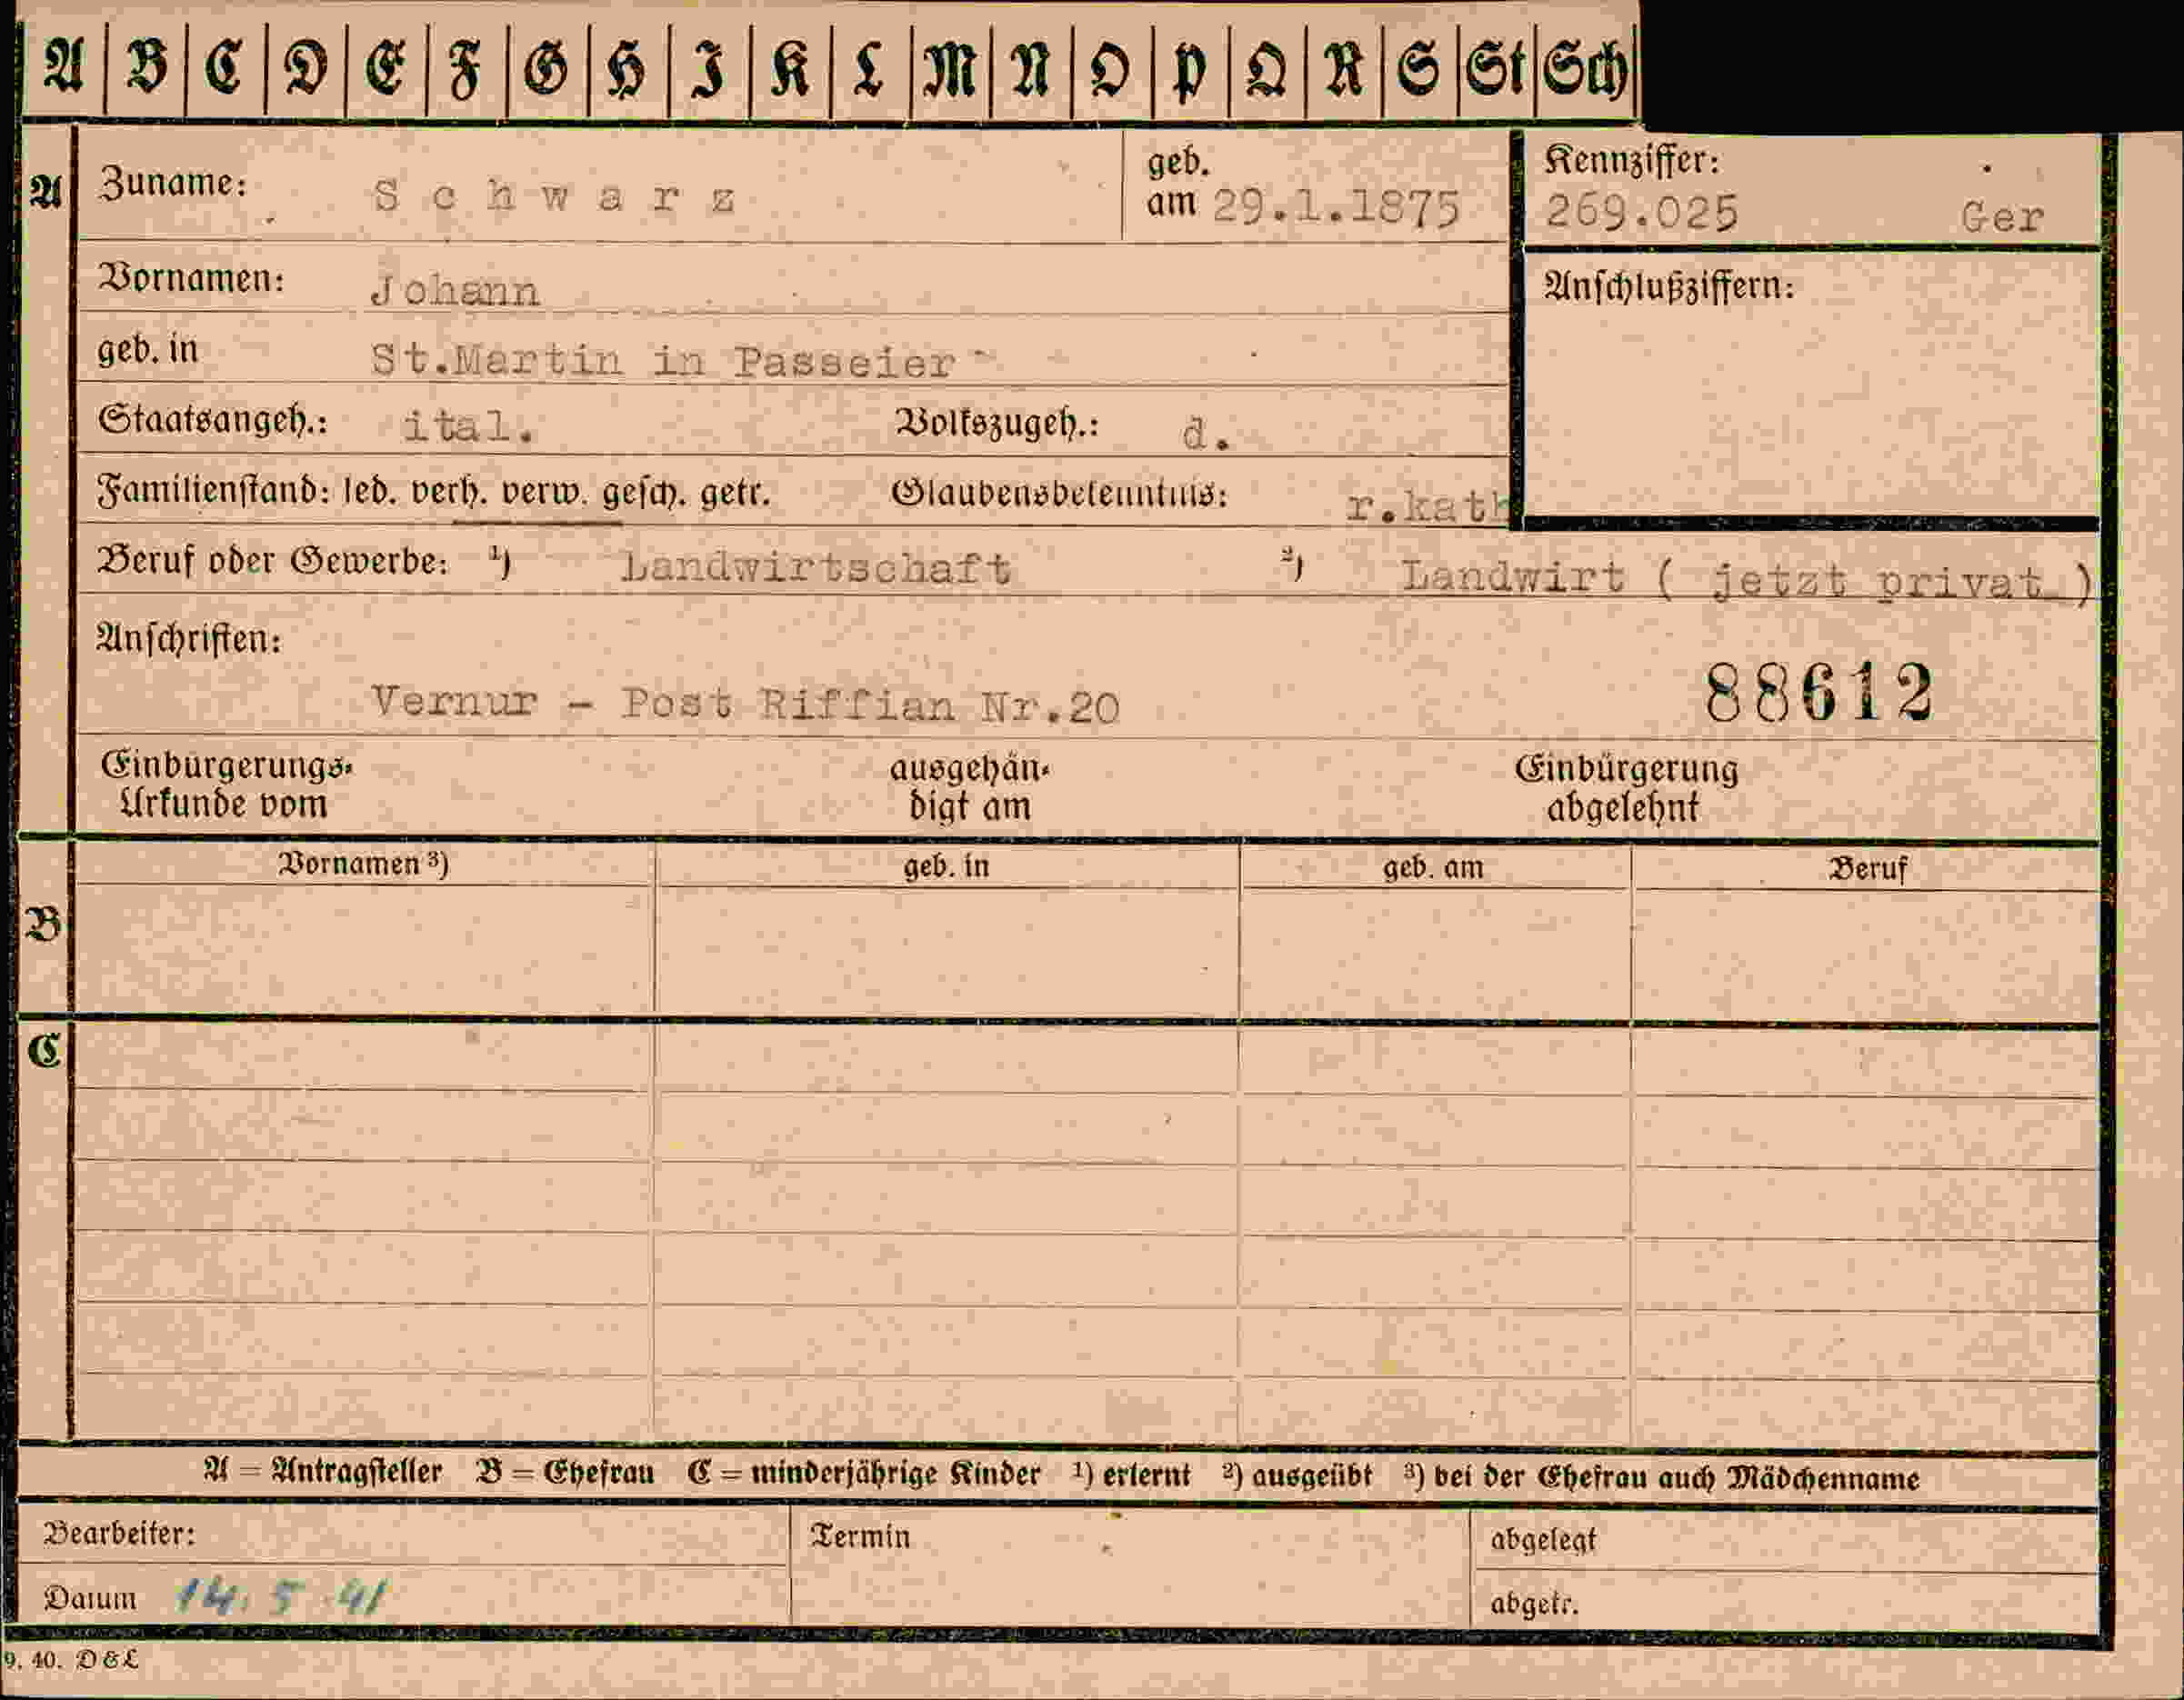 A B C D E F G H I K L M N O P Q R S St Sch
A Zuname: Schwarz geb. am 29.1.1875 Kennziffer: 269.025 Ger
Vornamen: Johann Anschlußziffern:
geb. in St.Martin in Passeier
Staatsangeh.: ital. Volkszugeh.: d.
Familienstand: led. verh. verw. gesch. getr. Glaubensbekenntnis: r.kath
Beruf oder Gewerbe: ¹) Landwirtschaft ²) Landwirt ( jetzt privat )
Anschriften:
88612
Vernur - Post Riffian Nr.20
Einbürgerungs- ausgehän- Einbürgerung
Urkunde vom digt am abgelehnt
Vornamen ³) geb. in geb. am Beruf
B
C
A = Antragsteller B = Ehefrau C = minderjährige Kinder ¹) erlernt ²) ausgeübt ³) bei der Ehefrau auch Mädchenname
Bearbeiter: Termin abgelegt
Datum 14. 5 .41 abgetr.
9. 40. D & L